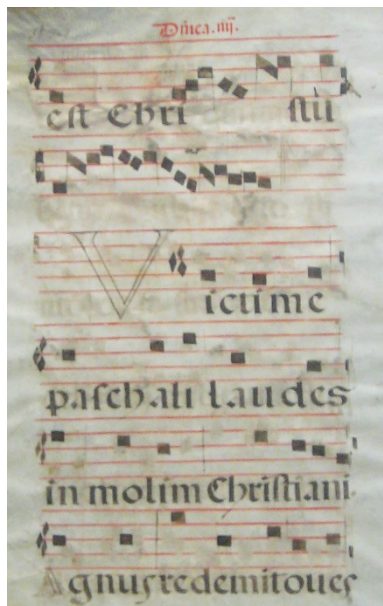 Dñica. iiij.
est Chri stū
V ictime
paschali laudes
in molim Christiani.
Agnus redemit oues